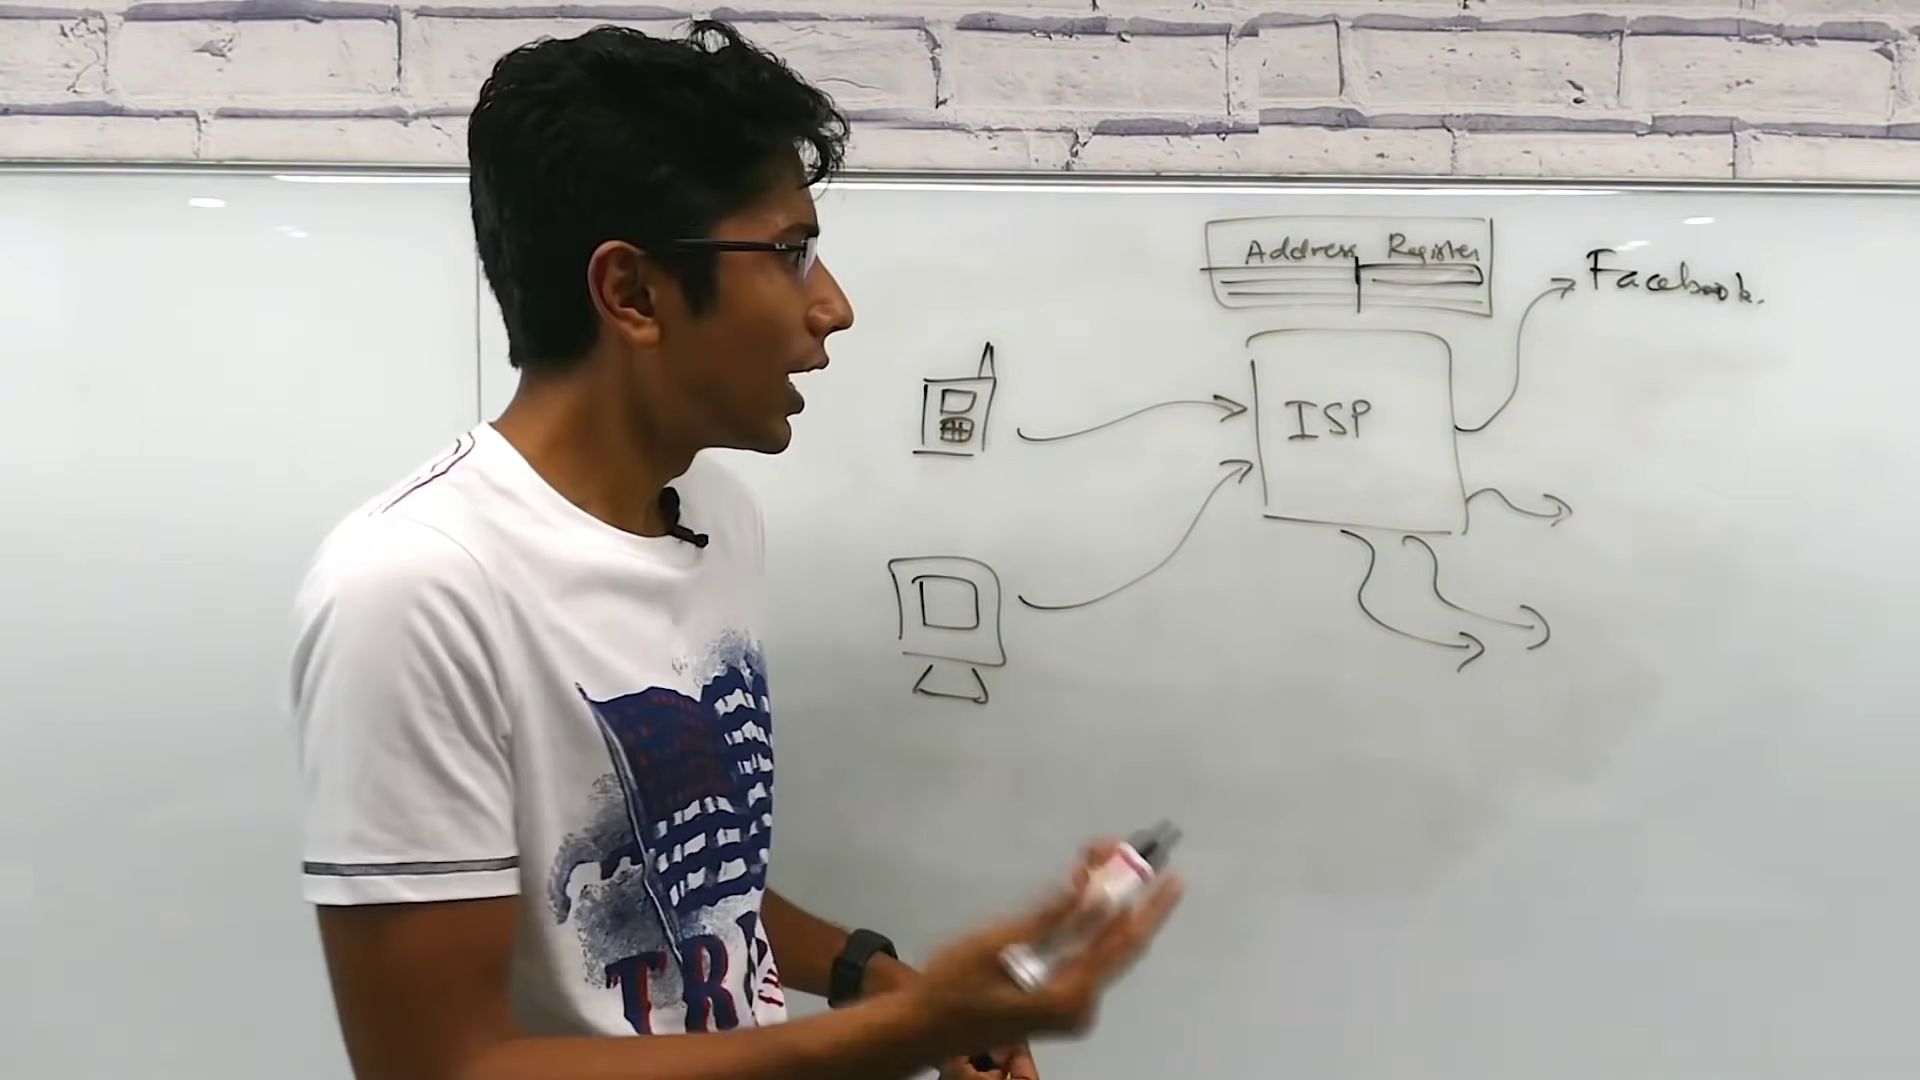 Address Register
Facebook.
ISP
TR